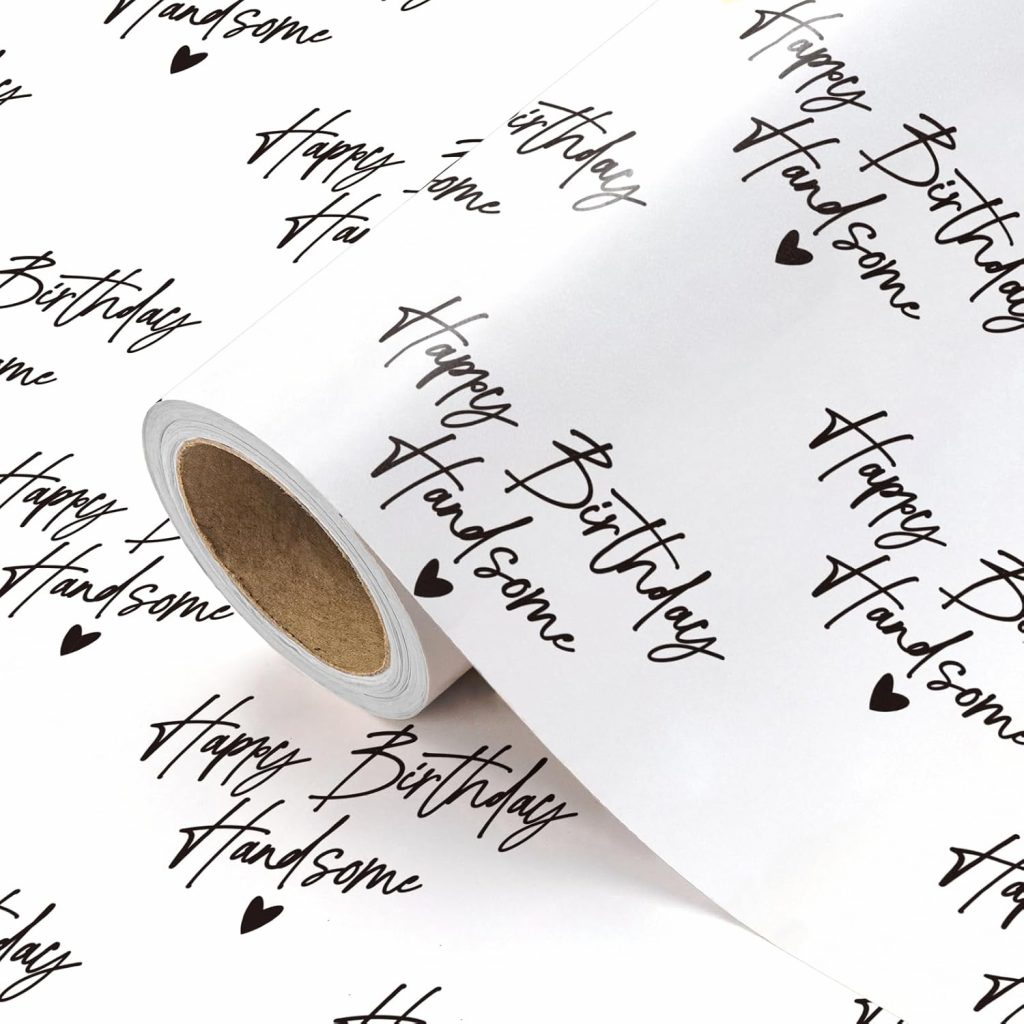 Handsome
Happy Birthday
Handsome
Happy
Birthday
Happy Birthday
Handsome
Happy
Handsome
Happy
Handsome
Happy Birthday
Handsome